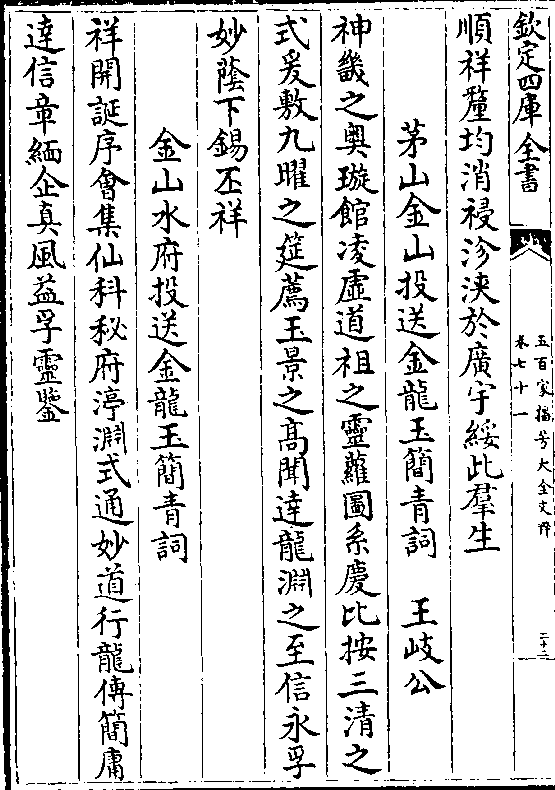 欽定四庫全書
五百家播芳大全文粹
卷七十一
二十三
順祥釐均消祲沴浹於廣宇綏此羣生
茅山金山投送金龍玉簡青詞 王岐公
神畿之奥璇館凌虚道祖之靈蘿圖系慶比按三清之
式爰敷九曜之筵薦玉景之髙聞達龍淵之至信永孚
妙蔭下錫丕祥
金山水府投送金龍玉簡青詞
祥開誕序會集仙科秘府渟淵式通妙道行龍傳簡庸
達信章緬企真風益孚靈鑒